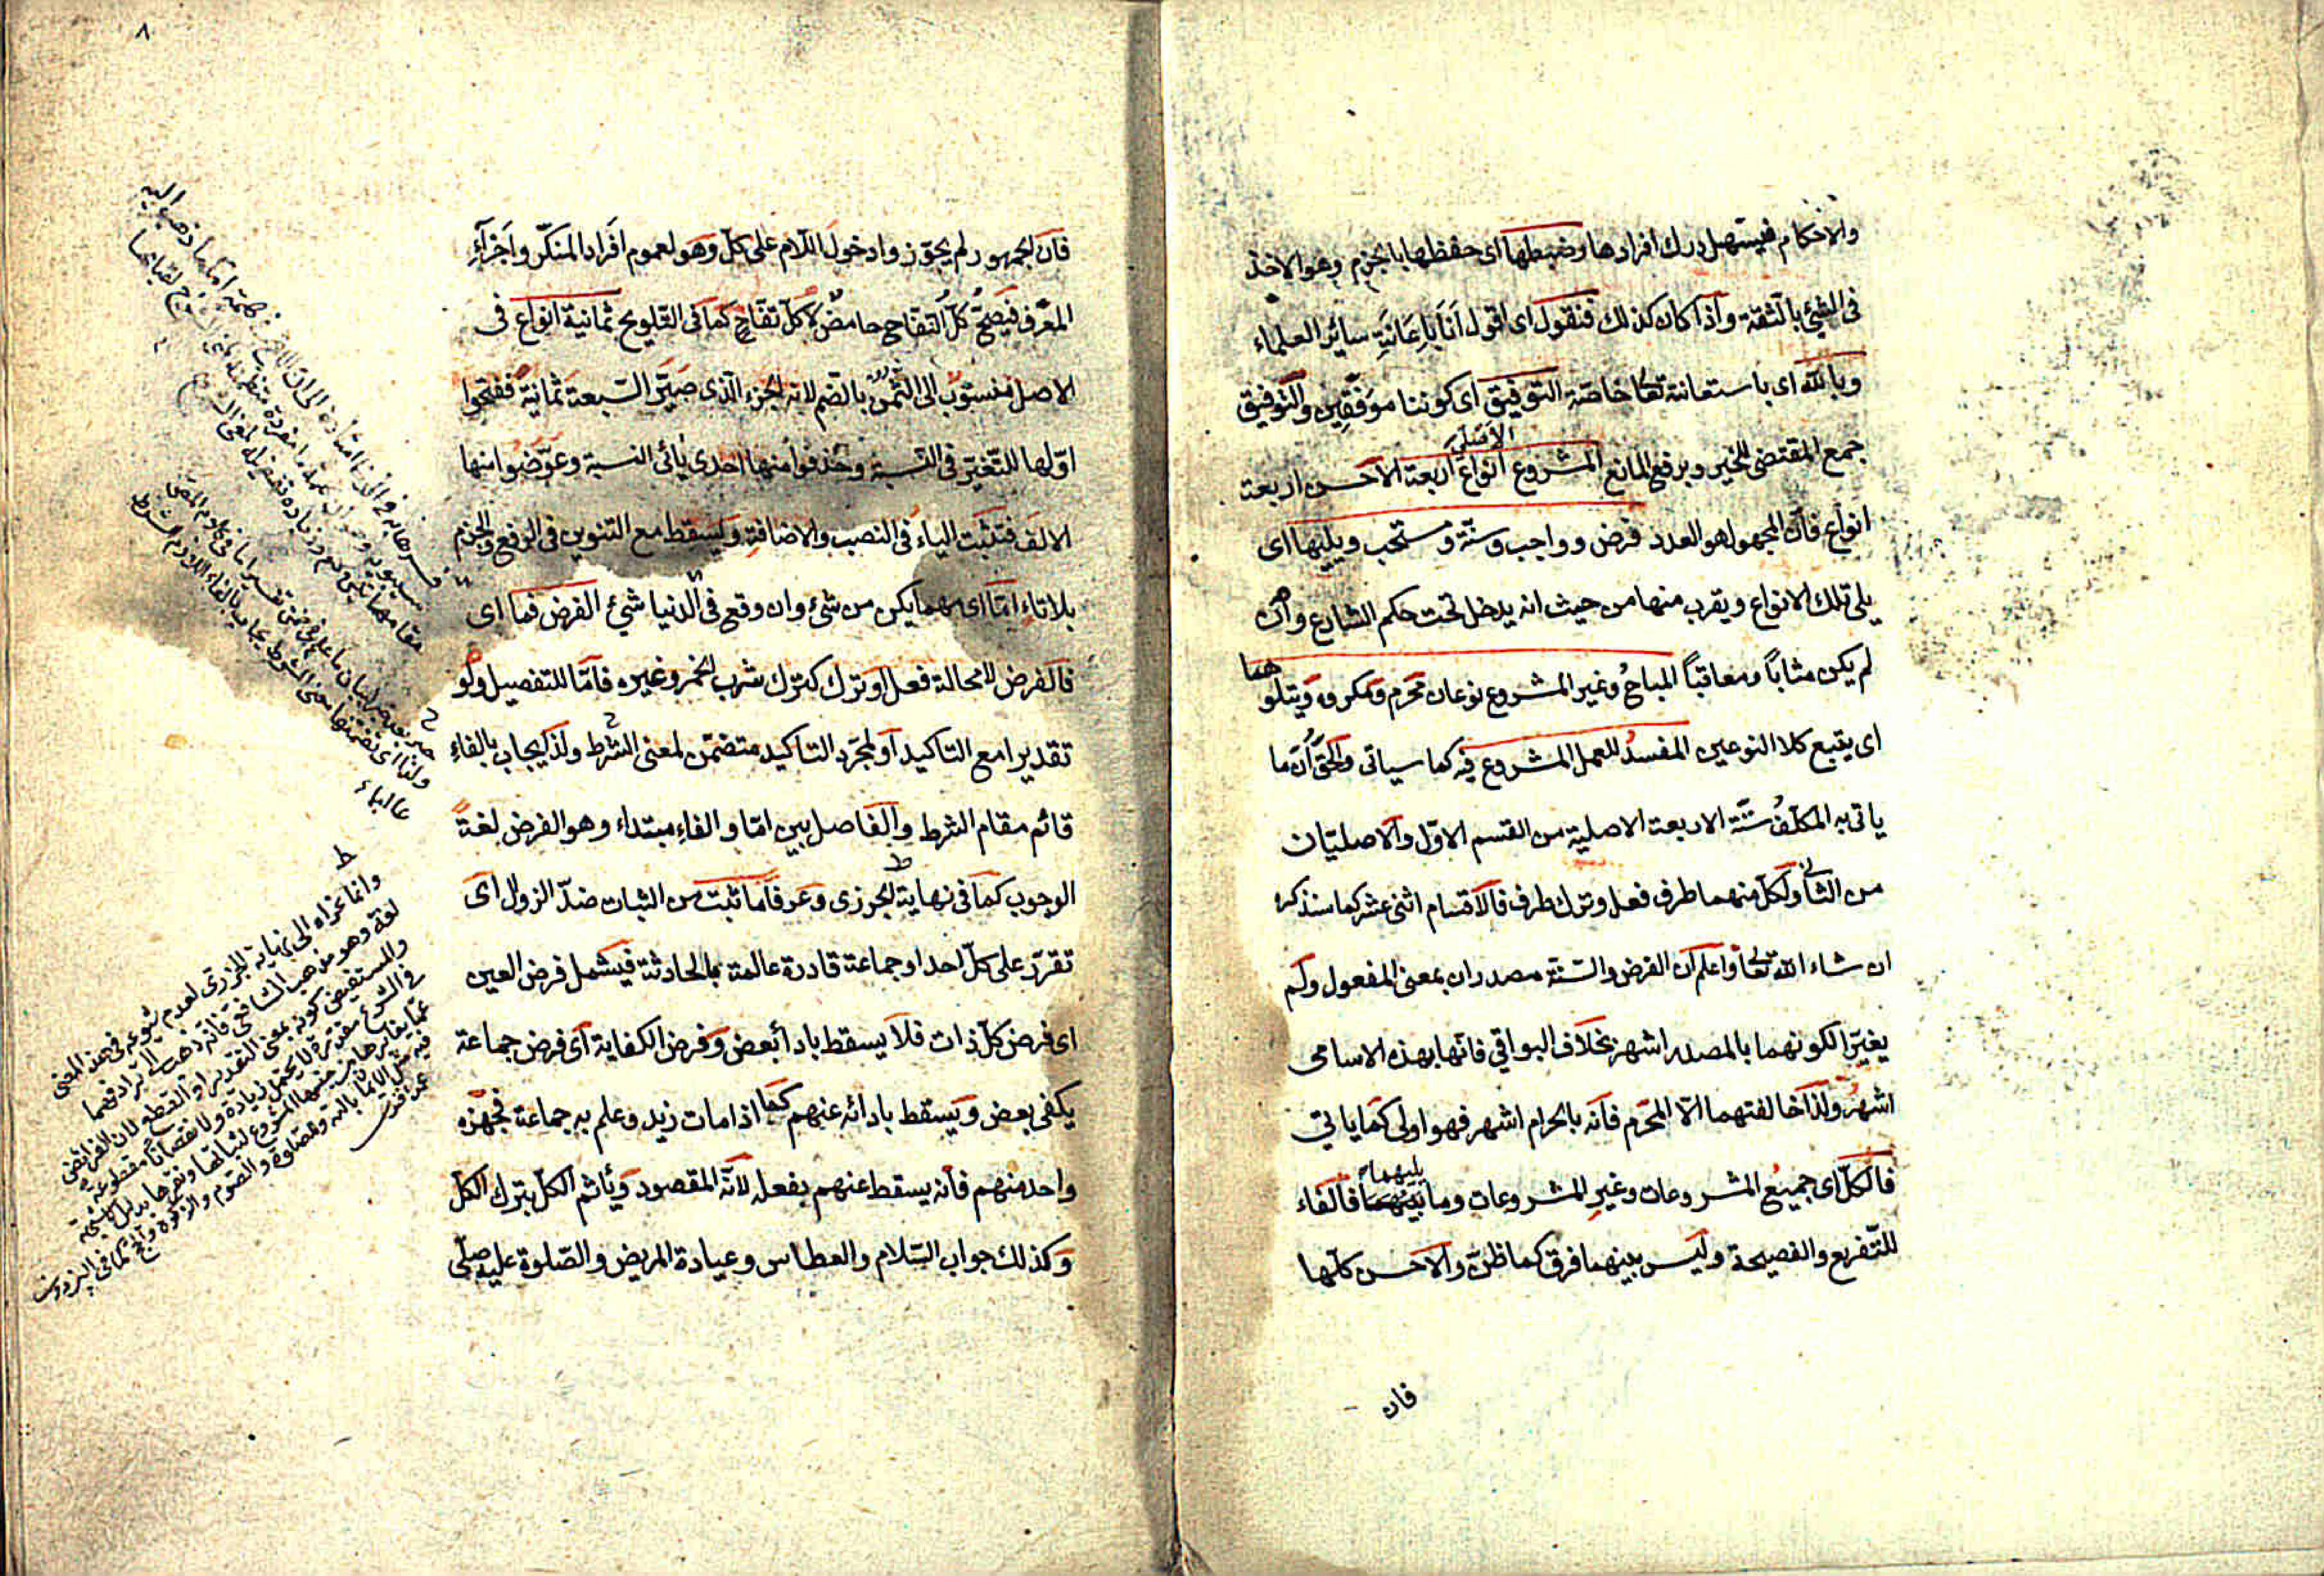 والاحكام فيسهل درك افرادها وضبطها اى حفظها بالجزم وهو الاخذ
فى الشئ بالثقة واذا كان كذلك فنقول اى اقول انا باعانة سائر العلماء
وبالله اى باستعانته تعا خاصة التوفيق اى كوننا موفقين والتوفيق
جمع المقتضى للخير وبرفع المانع المشروع الاصلى انواع اربعة الاحسن اربعة
انواع فان المجهول هو العدد فرض وواجب وسنّة ومستحب ويليها اى
يلى تلك الانواع ويقرب منها من حيث انه يدخل تحت حكم الشارع وان
لم يكن مثاباً ومعاقباً المباحُ وغير المشروع نوعان محرم ومكروه ويتلوهما
اى يتبع كلا النوعين المفسدُ للعمل المشروع فيه كما سياتى والحق ان ما
ياتى به المكلّفُ ستّة الاربعة الاصلية من القسم الاوّل والاصليّان
من الثانى ولكلّ منهما طرف فعل وترك طرف فالاقسام اثنى عشر كما سنذكره
ان شاء الله تعا واعلم ان الفرض والسنّة مصدران بمعنى المفعول ولم
يغيّرا لكونهما بالمصدر اشهر بخلاف البواقي فانها بهذه الاسامى
اشهرُ ولذا خالفتهما الّا المحّرم فانّه بالحرام اشهر فهو اولى كما ياتي
فالكلّ اى جميع المشروعات وغير المشروعات وما يليهما فالفاء
للتّفريع والفصيحة وليس بينهما فرق كما ظنّ والاحسن كلّها
فان
٨
فان الجمهور لم يجوّزوا دخول اللام على كلّ وهو لعموم افراد المنكّر واجزآء
المعّرف فيصحّ كلّ التفاح حامضٌ لا كلّ تفّاحٍ كما فى التلويح ثمانية انواع فى
الاصل منسوب الى الثُمن بالضّم لانه الجزء الّذى صيّر السّبعة ثمانيةً ففتحوا
اوّلها للتّغيّر فى النّسبة وحذفوا منها احدى يائى النسبة وعوّضوا منها
الالف فتثبت الياء فى النصب والاضافة ويسقط مع التنوين فى الرفع والجزم
بلا تاءٍ امّا اى مهما يكن من شئ وان وقع فى الدنيا شئ الفرض فما اى
فالفرض لا محالة فعل او ترك كترك شرب الخمر وغيره فامّا للتفصيل ولو
تقديرا مع التاكيد او لمجّرد التاكيد متضمّن لمعنى الشرط ولذا يجاب بالفاء
قائم مقام الشرط والفاصل بين امّا والفاء مبتداء وهو الفرض لغةً
الوجوب كما فى نهاية الجزرى وعرفا ما ثبت من الثبات ضدّ الزوال اى
تقرّر على كلّ احد او جماعة قادرة عالمة بالحادثة فيشمل فرض العين
اى فرض كلّ ذات فلا يسقط باداء بعض وفرض الكفاية اى فرض جماعة
يكفى بعض ويسقط بادائه عنهم كما اذا مات زيد وعلم به جماعة فجهّزه
واحد منهم فانه يسقط عنهم بفعله لانّه المقصود ويأثم الكلّ بترك الكلّ
وكذلك جواب السّلام والعطاس وعيادة المريض والصّلوة عليه صلّى
غالباء
ط
وانما عزاه الى نهاية الجزرى لعدم شيوعه فى هذا المعنى
لغة وهو مذهب الشافعى فانه ذهب الى ترادفهما
والمستفيض كونه بمعنى التقدير او القطع لان الفرائض
فى الشرع مقدرة لا يحتمل زيادة ولا نقصانا مقطوعة